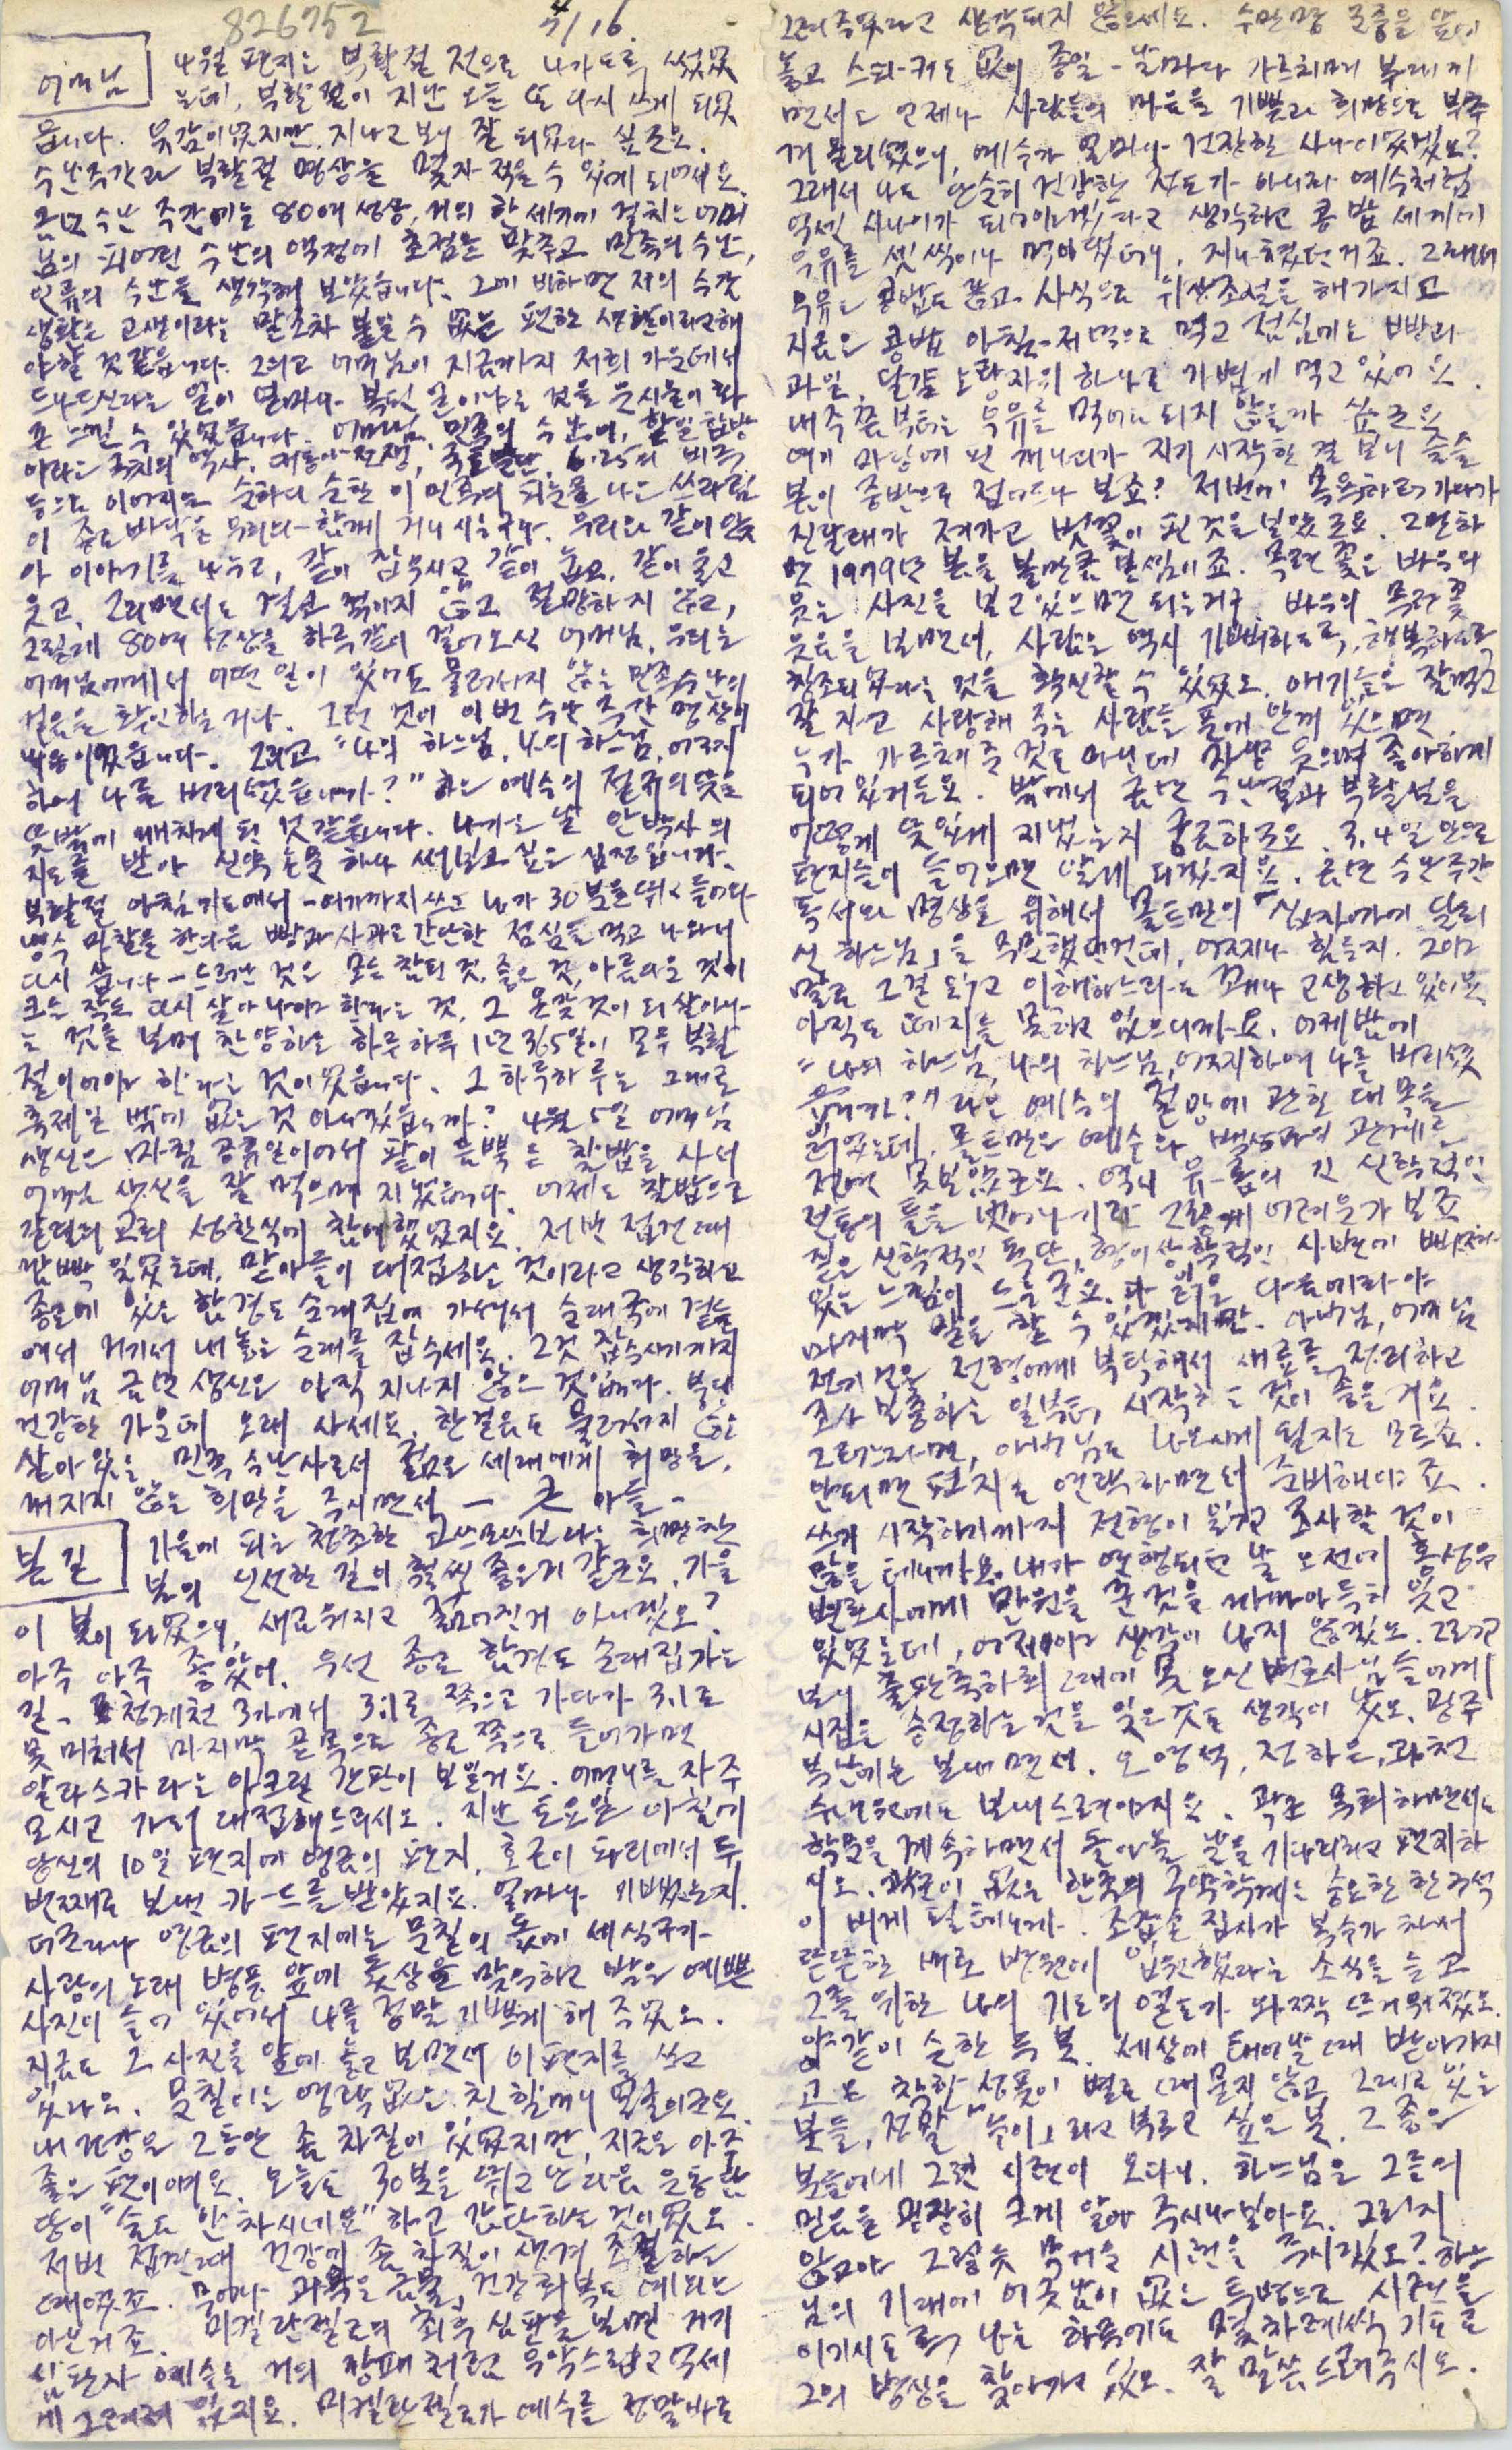 826752
4/16.
어머님
4월 편지는 부활절 전으로 나가도록 썼었
는데, 부활절이 지난 오늘 또 다시 쓰게 되었
읍니다. 유감이었지만, 지나고 보니 잘 되었다 싶군요.
수난주간과 부활절 명상을 몇자 적을 수 있게 되어서요.
금년 수난 주간에는 80여 성상, 거의 한 세기에 걸치는 어머
님의 피어린 수난의 역정에 초점을 맞추고 민족의 수난,
인류의 수난을 생각해 보았습니다. 그에 비하면 저의 수감
생활은 고생이라는 말조차 붙일 수 없는 편한 생활이라고 해
야할 것 같읍니다. 그리고 어머님이 지금까지 저희 가운데서
드나드신다는 일이 얼마나 복된 일이냐는 것을
느낄 수 있었읍니다. 어머님, 민족의 수난이, 한일합방
이라는 국치의 역사, 대동아전쟁, 국토분단, 6.25의 비극
등으로 이어지는 순하디 순한 이 민족의 피눈물 나는 쓰라림
이 종로바닥을 우리와 함께 거니시는구나. 우리와 같이 앉
아 이야기를 나누고, 같이 잡수시고 같이 눕고, 같이 울고
웃고, 그러면서도 결코 꺾이지 않고 절망하지 않고,
그렇게 80여 성상을 하루같이 걸어오신 어머님. 우리는
어머님에게서 어떤 일이 있어도 물러서지 않는 민족수난의
걸음을 확인하는 거다. 그런 것이 이번 수난 주간 명상의
내용이었읍니다. 그리고 "나의 하느님, 나의 하느님, 어찌
하여 나를 버리셨읍니까?" 하는 예수의 절규의 뜻을
뜻밖에 깨치게 된 것 같읍니다. 나가는 날 안박사의
지도를 받아 신약 논문 하나 써보고 싶은 심정입니다.
부활절 아침 기도에서 - 여기까지 쓰고 나가 30분을 뛰고 들어와
냉수 마찰을 한 다음 빵과 사과로 간단한 점심을 먹고 나와서
다시 씁니다 - 드러난 것은 모든 참된 것, 좋은 것, 아름다운 것이
크든 작든 다시 살아나야 한다는 것, 그 온갖 것이 되살아나
는 것을 보며 찬양하는 하루 하루 1년 365일이 모두 부활
절이어야 한다는 것이었읍니다. 그 하루하루는 그대로
축제일 밖에 없는 것 아니겠읍니까? 4월 5일 어머님
생신은 마침 공휴일이어서 팥이 듬뿍 든 찰밥을 사서
어머님 생신을 잘 먹으며 지냈읍니다. 어제도 찰밥으로
갈릴리 교회 성찬식에 참예했었지요. 저번 접견 때
깜빡 잊었는데, 맏아들이 대접하는 것이라고 생각하고
종로에 있는 함경도 순대집에 가셔서 순대국에 곁들
여서 거기서 내놓는 순대를 잡수세요. 그것 잡수시기까지
어머님 금년 생신은 아직 지나지 않은 것입니다. 부디
건강한 가운데 오래 사세요. 한 걸음도 물러서지 않는
살아 있는 민족 수난사로서 젊은 세대에게 희망을,
꺼지지 않는 희망을 주시면서 - 큰 아들 -
봄길
가을에 피는 청초한 고쓰모쓰보다는 희망찬
봄의 신선한 길이 훨씬 좋은 거 같군요. 가을
이 봄이 되었으니, 새로워지고 젊어진거 아니겠오?
아주 아주 좋았어. 우선 종로 함경도 순대집 가는
길. 청계천 3가에서 3.1로 쪽으로 가다가 3.1로
못 미처서 마지막 골목으로 종로 쪽으로 들어가면
알라스카라는 아크릴 간판이 보일거요. 어머니를 자주
모시고 가서 대접해 드리시오. 지난 토요일 아침에
당신의 10일 편지에 영금의 편지, 호근이 파리에서 두
번째로 보낸 카-드를 받았지요. 얼마나 기뻤는지.
더군다나 영금의 편지에는 문칠의 돐에 세식구가
사랑의 노래 병풍 앞에 돐상을 맞이하고 박은 예쁜
사진이 들어 있어서 나를 정말 기쁘게 해 주었오.
지금도 그 사진을 앞에 놓고 보면서 이 편지를 쓰고
있다오. 문칠이는 영락 없는 친할머니 얼굴이군요.
내 건강은 그동안 좀 차질이 있었지만, 지금은 아주
좋은 편이예요. 오늘도 30분을 뛰고 난 다음 운동 담
당이 "숨도 안 차시네요" 하고 감탄하는 것이었오.
저번 접견 때 건강에 좀 차질이 생겨 조절하는
때였죠. 뭣이나 과욕은 금물, 건강회복도 예외는
아닌거죠. 미켈란젤로의 최후 심판을 보면 거기
심판자 예수는 거의 깡패처럼 우악스럽고 억세
게 그려져 있지요. 미켈란젤로가 예수를 정말 바로
그려 주었다고 생각되지 않으세요. 수만명 군중을 앞에
놓고 스피-커도 없이 종일 - 날마다 가르치며 부대끼
면서도 언제나 사람들의 마음을 기쁨과 희망으로 부풀
게 만드셨으니, 예수가 얼마나 건장한 사나이였겠오?
그래서 나도 단순히 건강한 정도가 아니라 예수처럼
억센 사나이가 되어야겠다고 생각하고 콩밥 세끼에
우유를 셋씩이나 먹어댔더니, 지나쳤던거죠. 그래서
우유도 콩밥도 끊고 사식으로 위장조절을 해가지고
지금은 콩밥 아침-저녁으로 먹고 점심에는 빵과
과일, 달걀 노란자위 하나로 가볍게 먹고 있어요.
내주쯤부터는 우유를 먹어도 되지 않을까 싶군요.
여기 마당에 핀 개나리가 지기 시작한 걸 보니 슬슬
봄이 중반으로 접어드나 보죠? 저번에 목욕하러 가다가
진달래가 져가고 벗꽃이 핀 것을 보았군요. 그만하
면 1979년 봄을 볼만큼 본 셈이죠. 목련 꽃은 바우의
웃는 사진을 보고 있으면 되는거구. 바우의 목련꽃
웃음을 보면서, 사람은 역시 기뻐하도록, 행복하도록
창조되었다는 것을 확신할 수 있었오. 애기들은 잘먹고
잘 자고 사랑해 주는 사람들 품에 안겨 있으면
누가 가르쳐 준 것도 아닌데 방긋 웃으며 좋아하게
되어 있거든요. 밖에서 금년 수난절과 부활절을
어떻게 뜻있게 지냈는지 궁금하군요. 3,4일 안으로
편지들이 들어오면 알게 되겠지요. 금년 수난 주간
독서와 명상을 위해서 몰트만의 「십자가에 달리
신 하느님」을 주문했던건데, 어찌나 힘든지. 그야
말로 그걸 읽고 이해하느라고 꽤나 고생하고 있어요.
아직도 떼지를 못하고 있으니까요. 어제 밤에
"나의 하느님, 나의 하느님, 어찌하여 나를 버리셨
읍니까?" 라는 예수의 절망에 관한 대목을
읽었는데, 몰트만은 예수와 백성과의 관계를
전연 못보았군요. 역시 유-롭의 긴 신학적인
전통의 틀을 벗어나기란 그렇게 어려운가 보죠.
짙은 신학적인 독단, 형이상학적인 사변에 빠져
있는 느낌이 드는군요. 다 읽은 다음에라야
마지막 말을 할 수 있겠지만. 아버님, 어머님
전기 건은 전형에게 부탁해서 새로를 정리하고
조사 보충하는 일부터 시작하는 것이 좋을 거요.
그러느라면, 아버님도 나오시게 될지도 모르죠.
안되면 편지로 연락하면서 준비해야죠.
쓰기 시작하기까지 전형이 읽고 조사할 것이
많을 테니까요. 내가 연행되던 날 오전에 홍성우
변호사에게 만원을 꾼 것을 까마아득히 잊고
있었는데, 어제야 생각이 나지 않겠오. 그러고
보니 출판축하회 때에 못 오신 변호사님들에게
시집을 증정하는 것을 잊은 것도 생각이 났오. 광주
북산에는 보내면서. 오영석, 전하은, 과천
수녀원에도 보내 드려야지요. 곽은 목회하면서도
학문을 계속하면서 돌아올 날을 기다리라고 편지하
시오. 곽군이 없는 한국의 구약학계는 중요한 한 구석
이 비게 될테니까. 조갑손 집사가 복수가 차서
뜬뜬한 배로 병원에 입원했다는 소식을 듣고
그를 위한 나의 기도의 열도가 와짝 뜨거워졌오.
양같이 순한 두 분. 세상에 태어날 때 받아가지
고 온 착한 성품이 별로 때 묻지 않고 그대로 있는
분들, 정말 "높이"라고 부르고 싶은 분. 그 좋은
분들에게 그런 시련이 오다니. 하느님은 그들의
믿음을 굉장히 크게 알아 주시나보아요. 그렇지
않고야 그렇듯 무거운 시련을 주시겠오? 하느
님의 기대에 어긋남이 없는 투병으로 시련을
이기시도록, 나는 하루에도 몇 차례씩 기도로
그의 병상을 찾아가고 있오. 잘 말씀드려주시오.